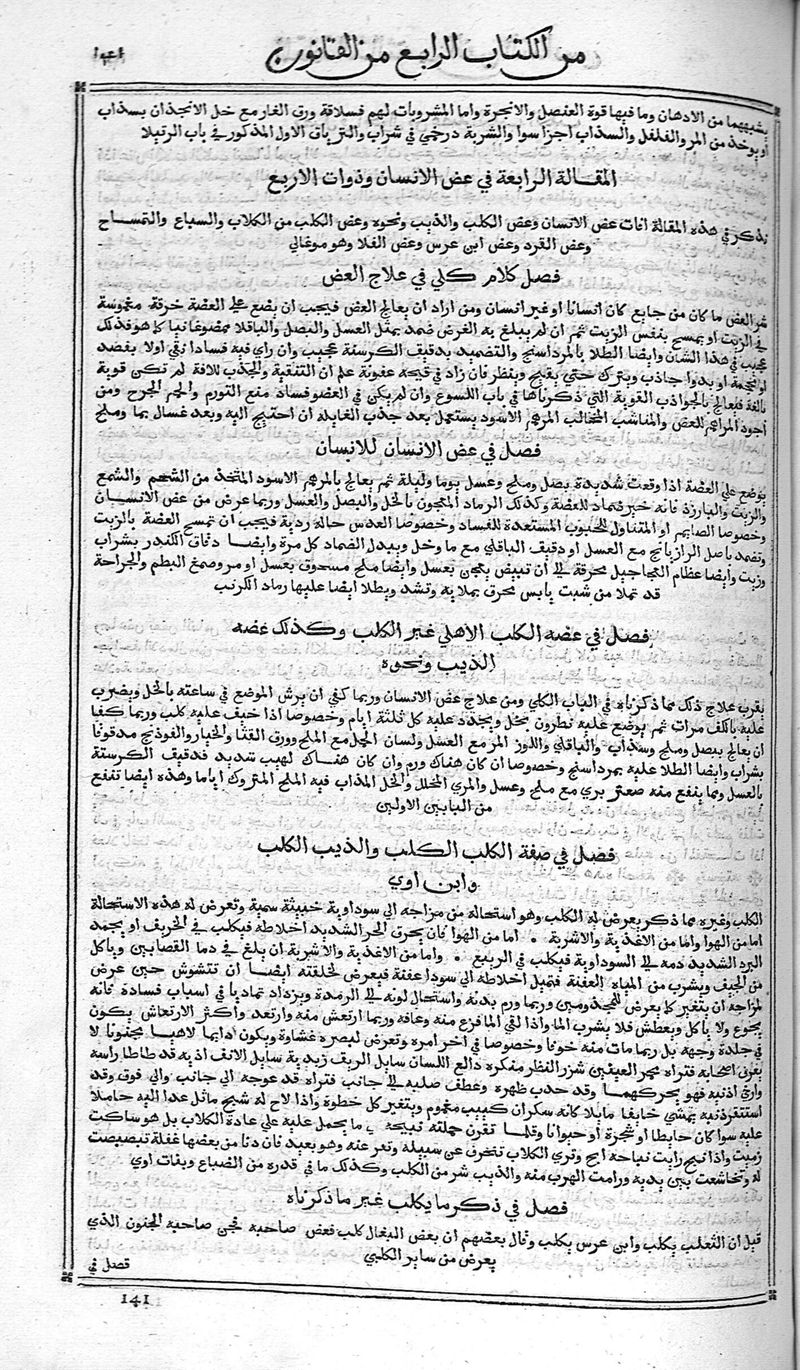 من الكتاب الرابع من القانون
١٤١
يشبههما من الادهان وما فيها قوة العنصل والانجرة واما المشروبات لهم فسلاقة ورق الغار مع خل الانجذان بسذاب
او يوخذ من المر والفلفل والسذاب اجزا سوا والشربة درخمي في شراب والترياق الاول المذكور في باب الرتيلا
المقالة الرابعة في عض الانسان وذوات الاربع
نذكر في هذه المقالة افات عض الانسان وعض الكلب والذيب ونحوه وعض الكلب من الكلاب والسباع والتمساح
وعض القرد وعض ابن عرس وعض الغلا وهو موغالي
فصل كلام كلي في علاج العض
شر العض ما كان من جايع كان انسانا او غير انسان ومن اراد ان يعالج العض فيجب ان يضع علي العضة خرقة مغموسة
في الزيت او يمسح بنفس الزيت ثم ان لم يبلغ به الغرض ضمد بمثل العسل والبصل والباقلا ممضوغانيا كما هو فذلك
عجيب في هذا الشان وايضا الطلا بالمرداسنج والتضميد بدقيق الكرسنة عجيب وان راي فيه فسادا نقي اولا بفصد
او بحجمة او بدوا جاذب ويترك حتي يقيح وينظر فان زاد في قيحه عفونة علم ان التنقية والجذب للافة لم تكن قوية
بالغة فيعالج بالجواذب القوية التي ذكرناها في باب اللسوع وان لم يكن في العضو فساد منع التورم والحم الجرح ومن
اجود المراهم للعض والمناشب المخالب المرهم الاسود يستعمل بعد جذب الغايلة ان احتيج اليه وبعد غسال بما وملح
فصل في عض الانسان للانسان
يوضع علي العضة اذا وقعت شديدة بصل وملح وعسل يوما وليلة ثم يعالج بالمرهم الاسود المتخذ من الشحم والشمع
والزيت والبارزذ فانه خير ضماد للعضة وكذلك الرماد المعجون بالخل والبصل والعسل وربما عرض من عض الانسان
وخصوصا الصايم او المتناول للحبوب المستعدة للفساد وخصوصا العدس حالة ردية فيجب ان تمسح العضة بالزيت
وتضمد باصل الرازيانج مع العسل او دقيق الباقلي مع ما وخل ويبدل الضماد كل مرة وايضا دقاق الكندر بشراب
وزيت وايضا عظام العجاجيل محرقة الي ان تبيض بعجن بعسل وايضا ملح مسحوق بعسل او مر وصمغ البطم والجراحة
قد تملا من شبت يابس محرق بملا به وتشد ويطلا ايضا عليها رماد الكرنب
فصل في عضه الكلب الاهلي غير الكلب وكذلك عضه
الذيب ونحوه
يقرب علاج ذلك مما ذكرناه في الباب الكلي ومن علاج عض الانسان وربما كفي ان يرش الموضع في ساعته بالخل ويضرب
عليه بالكف مرات ثم يوضع عليه نطرون بخل ويجدد عليه كل ثلثة ايام وخصوصا اذا خيف عليه كلب وربما كفا
ان يعالج ببصل وملح وسذاب والباقلي واللوز المر مع العسل ولسان الحمل مع الملح وورق القثا والخيار والفوذنج مدقوقا
بشراب وايضا الطلا عليه بمرداسنج وخصوصا ان كان هناك ورم وان كان هناك لهيب شديد فدقيق الكرسنة
بالعسل ومما ينفع منه صعتر بري مع ملح وعسل والمري المخلل والخل المذاب فيه الملح المتروك اياما وهذه ايضا تنفع
من البابين الاولين
فصل في صفة الكلب الكلب والذيب الكلب
وابن اوي
الكلب وغيره مما ذكر يعرض له الكلب وهو استحالة من مزاجه الي سوداوية خبيثة سمية وتعرض له هذه الاستحالة
اما من الهوا واما من الاغذية والاشربة . اما من الهوا فان يحرق الحر الشديد اخلاطه فيكلب في الخريف او يجمد
البرد الشديد دمه الي السوداوية فيكلب في الربيع . واما من الاغذية والاشربة ان يلغ في دما القصابين وياكل
من الجيف ويشرب من المياه العفنة فتميل اخلاطه الي سودا عفنة فيعرض لخلقته ايضا ان تتشوش حين عرض
لمزاجه ان يتغير كما يعرض للمجذومين وربما ورم بدنه واستحال لونه الي الرمدة ويزداد تماديا في اسباب فسادة فانه
يجوع ولا ياكل ويعطش فلا يشرب الما واذا لقي الما فزع منه وعافه وربما ارتعش منه وارتعد واكثر الارتعاش يكون
في جلدة وجهه بل ربما مات منه خوفا وخصوصا في اخر امره وتعرض لبصره غشاوة ويكون دايما لاهيا مجنونا لا
يعرف اصحابه فتراه محمر العينين شزر النظر منكره دالع اللسان سايل الريق زبدية سايل الانف اذيه قد طاطا راسه
وارخي اذنيه فهو يحركهما وقد حدب ظهره وعطف صلبه الي جانب فتراه قد عوجه الي جانب والي فوق وقد
استثفر ذنبه يمشي خايفا مايلا كانه سكران كييب مغموم ويتعثر كل خطوة واذا لاح له شبح ماثل عدا اليه حاملا
عليه سوا كان حايطا او شجرة او حيوانا وقلما تقرن حملته نبيحه ما يحمل عليه علي عادة الكلاب بل هو ساكت
زميت واذا نبح رايت نباحه ابح وتري الكلاب تنحرف عن سبيله وتفر عنه وهو بعيد فان دنا من بعضها غفلة تبصبصت
له وتخاشعت بين يديه ورامت الهرب منه والذيب شر من الكلب وكذلك ما في قدره من الضباع وبنات اوي
فصل في ذكر ما يكلب غير ما ذكرناه
قيل ان الثعلب يكلب وابن عرس يكلب وقال بعضهم ان بعض البغال كلب فعض صاحبه فجن صاحبه الجنون الذي
يعرض من ساير الكلبي
فصل في
141